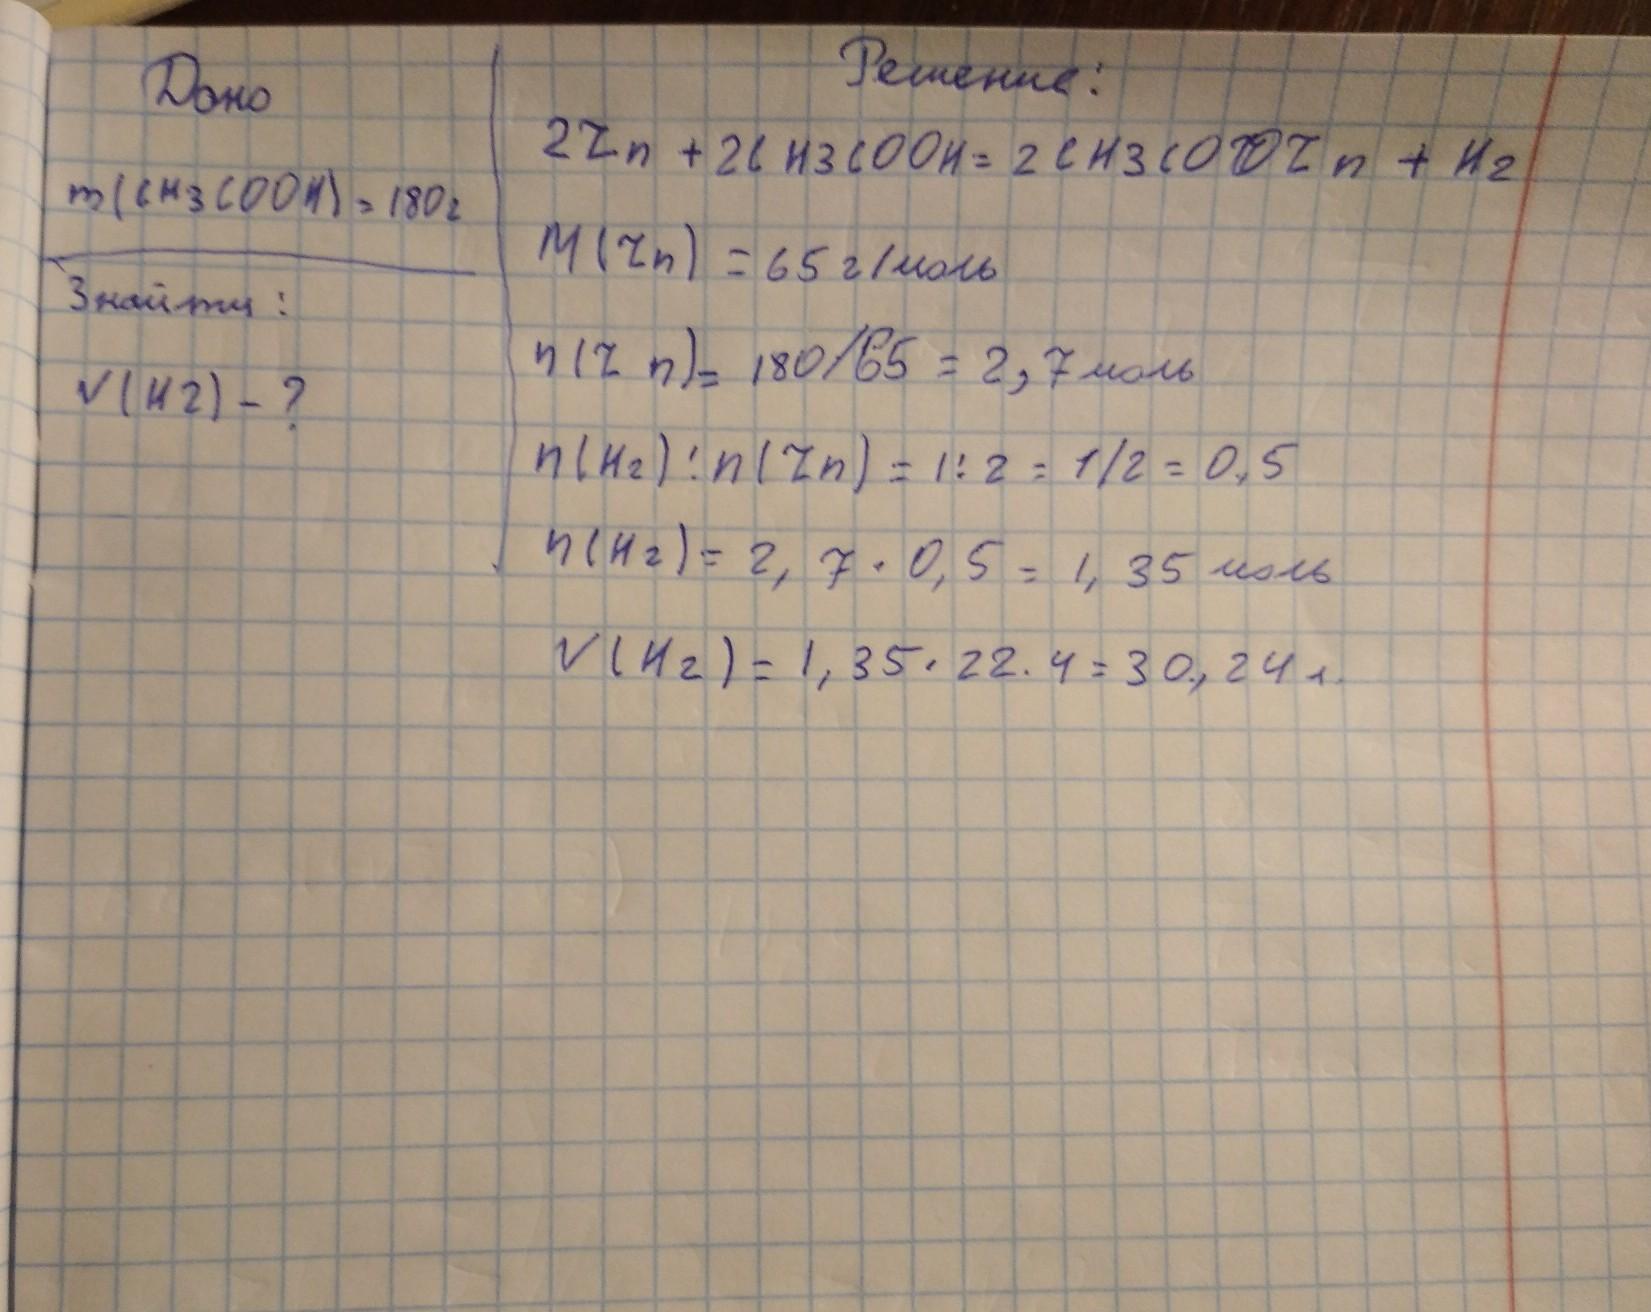 Дано
m(CH3COOH)=180г
Знайти:
V(H2)-?
Решение:
2Zn+2CH3COOH=2CH3COOZn+H2
M(Zn)=65г/моль
n(Zn)=180/65=2,7моль
n(H2):n(Zn)=1:2=1/2=0,5
n(H2)=2,7·0,5=1,35моль
V(H2)=1,35·22.4=30,24л.